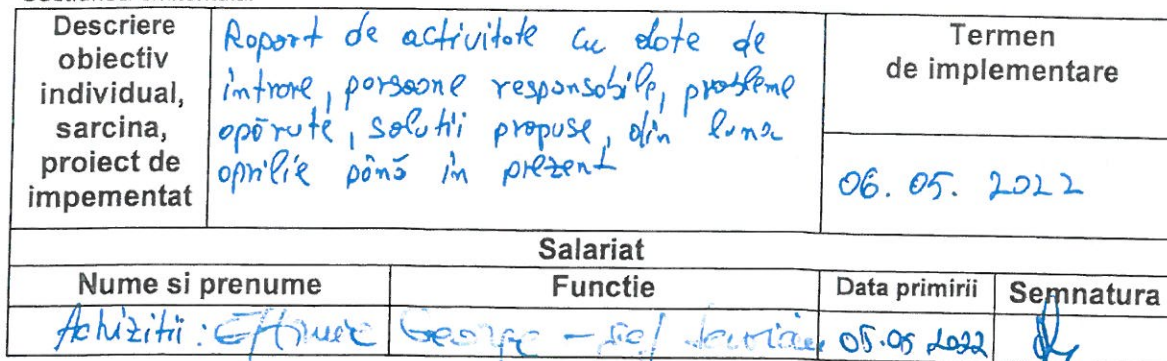 Descriere
obiectiv
individual,
sarcina,
proiect de
impementat
Raport de activitate cu date de
intrare, persoane responsabile, probleme
apărute, soluții propuse, din luna
aprilie până în prezent
Termen
de implementare
06. 05. 2022
Salariat
Nume si prenume Functie Data primirii Semnatura
Achiziții : George - șef 05.05.2022